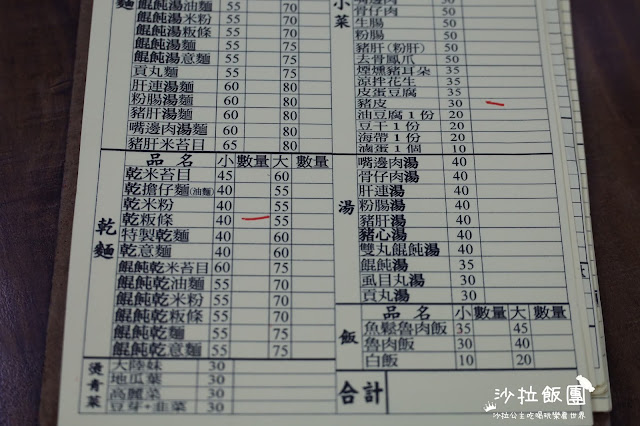 麵
餛飩湯油麵 55 70
餛飩湯米粉 55 70
餛飩湯粄條 55 70
餛飩湯麵 55 70
餛飩湯意麵 55 70
貢丸麵 55 70
肝連湯麵 60 80
粉腸湯麵 60 80
豬肝湯麵 60 80
嘴邊肉湯麵 60 80
豬肝米苔目 65 80
乾麵
品名 小 數量 大 數量
乾米苔目 45 60
乾擔仔麵(油麵) 40 55
乾米粉 40 55
乾粄條 40 55
特製乾麵 40 60
乾意麵 40 60
餛飩乾米苔目 60 75
餛飩乾油麵 55 70
餛飩乾米粉 55 70
餛飩乾粄條 55 70
餛飩乾麵 55 75
餛飩乾意麵 55 75
燙青菜
大陸妹 30
地瓜葉 30
高麗菜 30
豆芽+韭菜 30
小菜
嘴邊肉 50
骨仔肉 50
生腸 50
粉腸 50
豬肝(粉肝) 50
去骨鳳爪 50
煙燻豬耳朵 35
涼拌花生 35
皮蛋豆腐 35
豬皮 30
油豆腐1份 20
豆干1份 20
海帶1份 20
滷蛋1個 10
湯
嘴邊肉湯 40
骨仔肉湯 40
肝連湯 40
粉腸湯 40
豬肝湯 40
豬心湯 40
雙丸餛飩湯 40
餛飩湯 35
虱目丸湯 30
貢丸湯 30
飯
品名 小 數量 大 數量
魚鬆魯肉飯 35 45
魯肉飯 30 40
白飯 10 20
合計
沙拉飯團
沙拉公主吃喝玩樂看世界